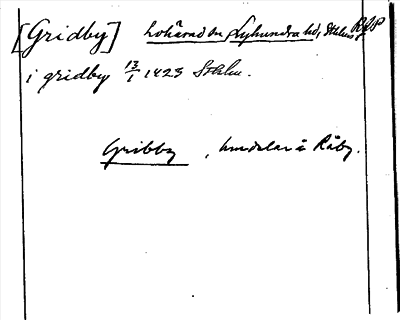 [Gridby] Lohärad sn Lyhundra hd, Sthlms RAP
i gridby 13/1 1423 Sthlm.
Gribby, hemdelar i Råby.